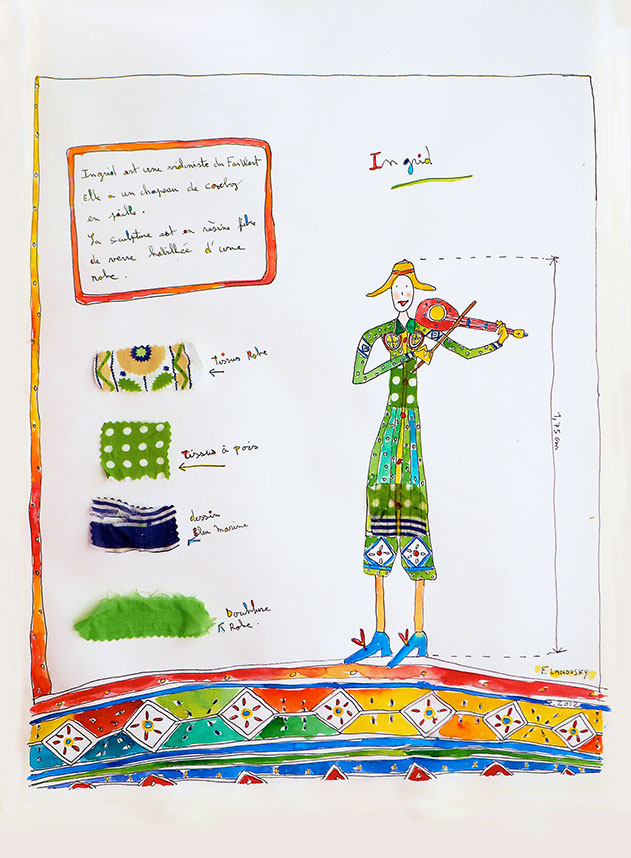 Ingrid est une violoniste du FarWest
Elle a un chapeau de cowboy
en paille.
La sculpture est en résine fibre
de verre habillée d'une
robe.
Ingrid
Tissus Robe
tissus à pois
dessin
bleu marine
Doublure
Robe.
1,75 cm
F. LANOUSKY
2012